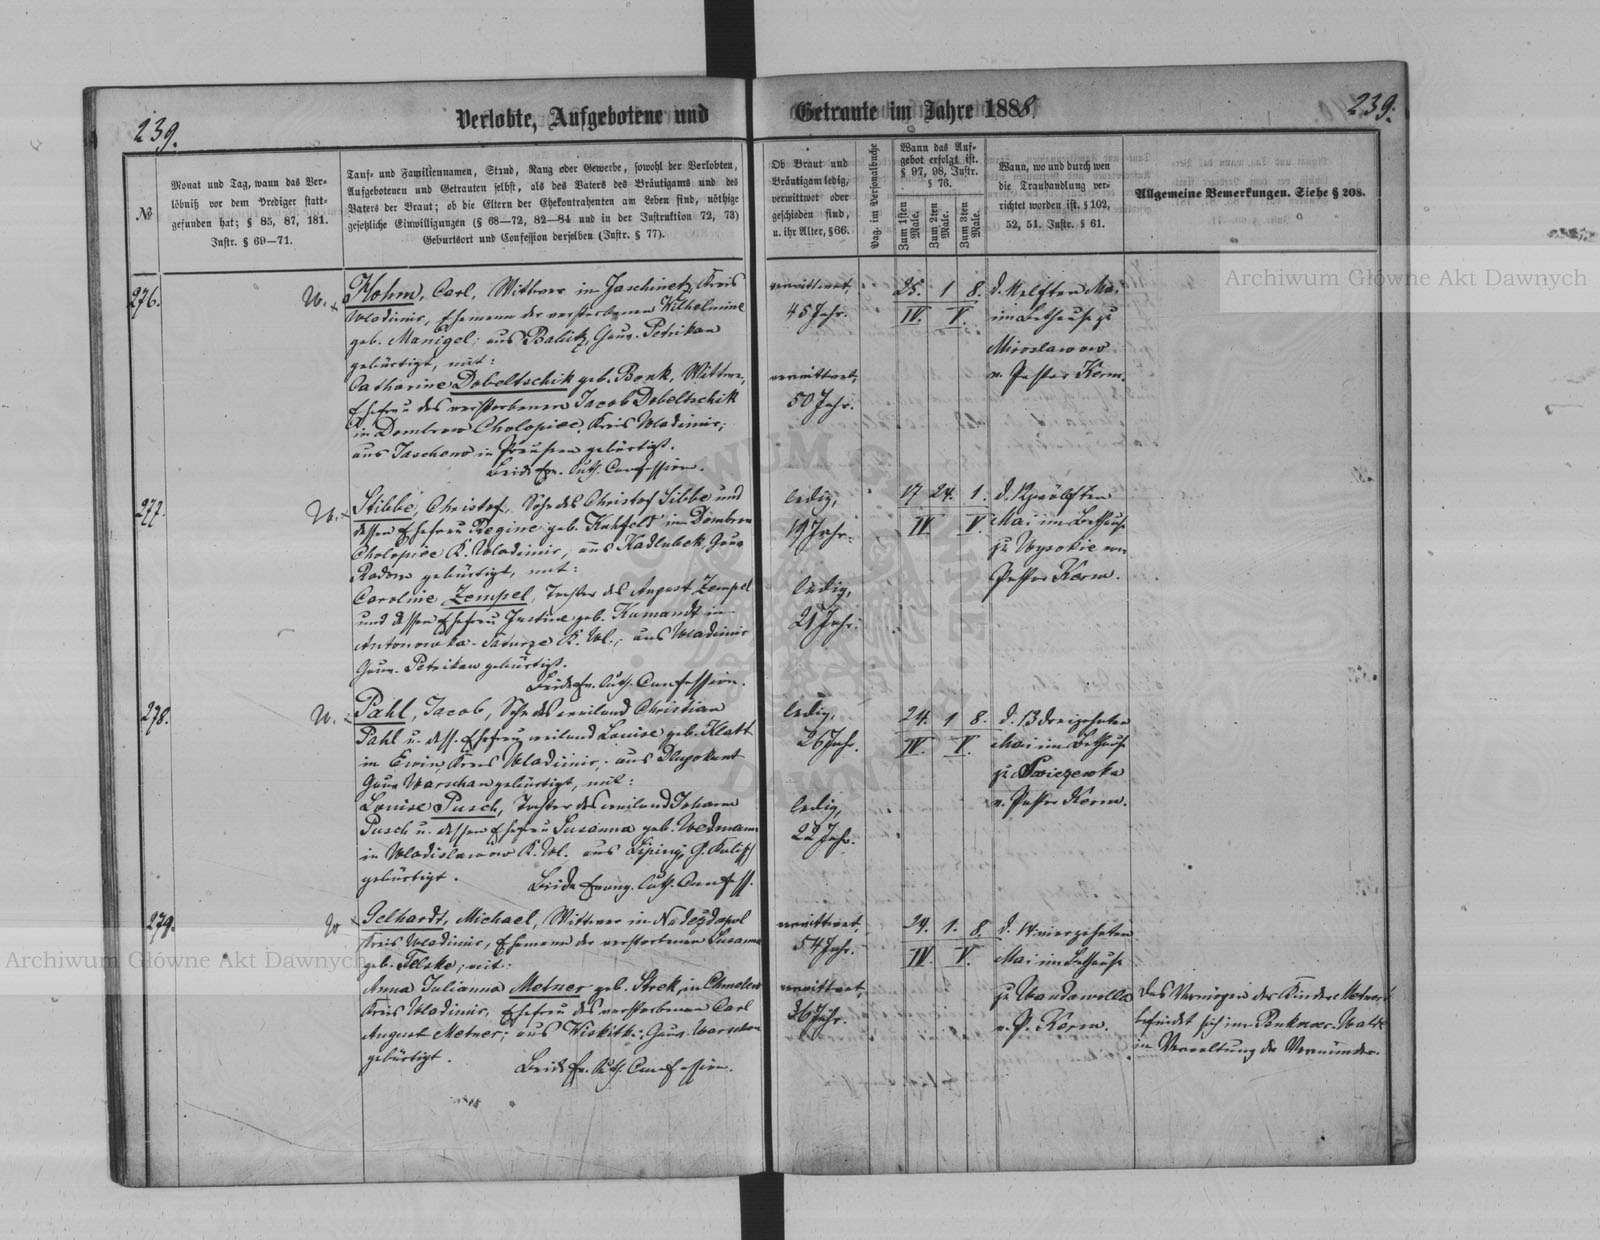 239.
Verlobte, Aufgebotene und
Getraute im Jahre 1888.
239.
№
Monat und Tag, wann das Ver-
löbniß vor dem Prediger statt-
gefunden hat; § 85, 87, 181.
Instr. § 69—71.
Tauf- und Familiennamen, Stand, Rang oder Gewerbe, sowohl der Verlobten,
Aufgebotenen und Getrauten selbst, als des Vaters des Bräutigams und des
Vaters der Braut; ob die Eltern der Ehekontrahenten am Leben sind, nöthige
gesetzliche Einwilligungen (§ 68—72, 82—84 und in der Instruktion 72, 73)
Geburtsort und Confession derselben (Instr. § 77).
Ob Braut und
Bräutigam ledig,
verwittwet oder
geschieden sind,
u. ihr Alter, § 66.
Pag. im Personalbuche
Wann das Auf-
gebot erfolgt ist.
§ 97, 98, Instr.
§ 76.
Zum 1sten Male.
Zum 2ten Male.
Zum 3ten Male.
Wann, wo und durch wen
die Trauhandlung ver-
richtet worden ist. § 102,
52, 51. Instr. § 61.
Allgemeine Bemerkungen. Siehe § 208.
276.
W.
Hohm, Carl, Wittwer in Jaschinetz, Kreis
Wladimir, Ehemann der verstorbenen Wilhelmine
geb. Manigel; aus Balutz, Gouv. Petrikau
gebürtigt, mit:
Catharine Dobeltschik geb. Bonk, Wittwe,
Ehefrau des verstorbenen Jacob Dobeltschik
in Dombrow Cholopiec, Kreis Wladimir;
aus Jaschono in Preußen gebürtigt.
Beide Ev. Luth. Confession.
verwittwet,
45 Jahr.
verwittwet,
50 Jahr.
25. 1 8.
IV. V.
d. elften Mai
im Bethause zu
Miroslawow
v. Pastor Kerm.
277.
W.
Stibbe, Christof, Sohn des Christof Stibbe und
dessen Ehefrau Regine geb. Kuhfeld in Dombrow
Cholopiec K. Wladimir, aus Kadlubek, Gouv
Radom gebürtigt, mit:
Caroline Zempel, Tochter des August Zempel
und dessen Ehefrau Justine geb. Kumandt in
Antonowka-Saturze K. Wl.; aus Wladimir
Gouv. Petrikau gebürtigt.
Beide Ev. Luth. Confession.
ledig,
19 Jahr.
ledig,
21 Jahr.
17 24. 1.
IV. V.
d. zwölften
Mai im Bethause
zu Wysokie von
Pastor Kerm.
278.
W.
Pahl, Jacob, Sohn des weiland Christian
Pahl u. dess. Ehefrau weiland Louise geb. Klatt
in Erwin, Kreis Wladimir, aus
Gouv Warschau gebürtigt, mit:
Louise Pusch, Tochter des weiland Johann
Pusch u. dessen Ehefrau Susanna geb. Wedmann
in Wladislawow K. Wl. aus Lipiny, G. Kalisch
gebürtigt.
Beide Evang. Luth. Confess.
ledig,
26 Jahr.
ledig,
22 Jahr.
24. 1 8.
IV. V.
d. 13 dreizehnten
Mai im Bethause
zu Swiczewka
v. Pastor Kerm.
279.
W
Gelhardt, Michael, Wittwer in Nadezdapol
Kreis Wladimir, Ehemann der verstorbenen Susanna
geb. Felske; mit:
Anna Julianna Metner geb. Strek, in Chmelew
Kreis Wladimir, Ehefrau des verstorbenen Carl
August Metner; aus Wiskitki; Gouv. Warschau
gebürtigt.
Beide Ev. Luth. Confession.
verwittwet,
54 Jahr.
verwittwet,
36 Jahr.
24. 1. 8.
IV. V.
d. 14 vierzehnten
Mai im Bethause
zu Wandawolla
v. P. Kerm.
Das Vermögen der Kinder Metner
befindet sich im Walde
in Verwaltung der Vormünder.
Archiwum Główne Akt Dawnych
Archiwum Główne Akt Dawnych